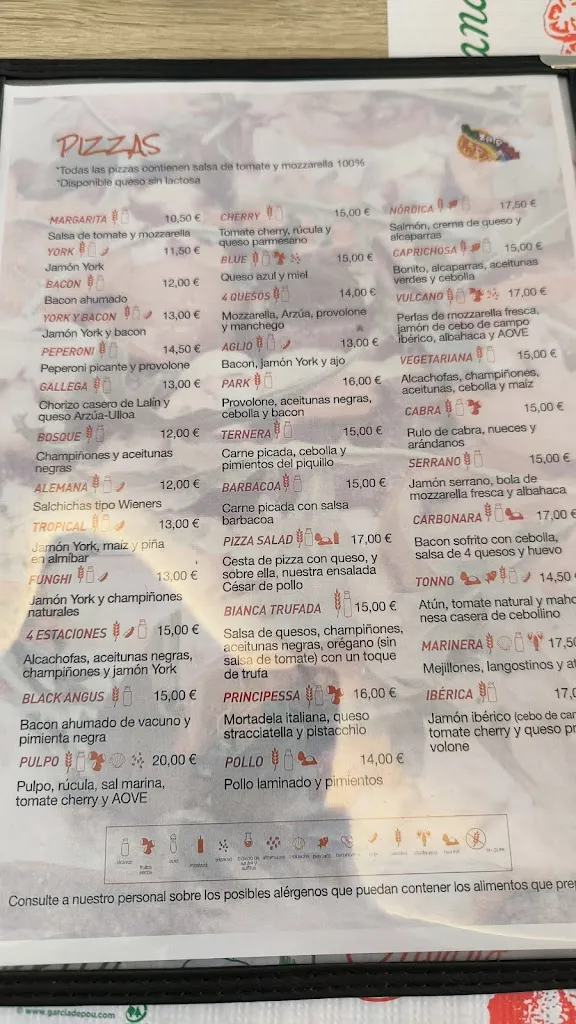 PIZZAS
*Todas las pizzas contienen salsa de tomate y mozzarella 100%
*Disponible queso sin lactosa
MARGARITA 10,50 €
Salsa de tomate y mozzarella
YORK 11,50 €
Jamón York
BACON 12,00 €
Bacon ahumado
YORK Y BACON 13,00 €
Jamón York y bacon
PEPERONI 14,50 €
Peperoni picante y provolone
GALLEGA 13,00 €
Chorizo casero de Lalín y
queso Arzúa-Ulloa
BOSQUE 12,00 €
Champiñones y aceitunas
negras
ALEMANA 12,00 €
Salchichas tipo Wieners
TROPICAL 13,00 €
Jamón York, maíz y piña
en almíbar
FUNGHI 13,00 €
Jamón York y champiñones
naturales
4 ESTACIONES 15,00 €
Alcachofas, aceitunas negras,
champiñones y jamón York
BLACK ANGUS 15,00 €
Bacon ahumado de vacuno y
pimienta negra
PULPO 20,00 €
Pulpo, rúcula, sal marina,
tomate cherry y AOVE
CHERRY 15,00 €
Tomate cherry, rúcula y
queso parmesano
BLUE 15,00 €
Queso azul y miel
4 QUESOS 14,00 €
Mozzarella, Arzúa, provolone
y manchego
AGLIO 13,00 €
Bacon, jamón York y ajo
PARK 16,00 €
Provolone, aceitunas negras,
cebolla y bacon
TERNERA 15,00 €
Carne picada, cebolla y
pimientos del piquillo
BARBACOA 15,00 €
Carne picada con salsa
barbacoa
PIZZA SALAD 17,00 €
Cesta de pizza con queso, y
sobre ella, nuestra ensalada
César de pollo
BIANCA TRUFADA 15,00 €
Salsa de quesos, champiñones,
aceitunas negras, orégano (sin
salsa de tomate) con un toque
de trufa
PRINCIPESSA 16,00 €
Mortadela italiana, queso
stracciatella y pistacchio
POLLO 14,00 €
Pollo laminado y pimientos
NÓRDICA 17,50 €
Salmón, crema de queso y
alcaparras
CAPRICHOSA 15,00 €
Bonito, alcaparras, aceitunas
verdes y cebolla
VULCANO 17,00 €
Perlas de mozzarella fresca,
jamón de cebo de campo
ibérico, albahaca y AOVE
VEGETARIANA 15,00 €
Alcachofas, champiñones,
aceitunas, cebolla y maíz
CABRA 15,00 €
Rulo de cabra, nueces y
arándanos
SERRANO 15,00 €
Jamón serrano, bola de
mozzarella fresca y albahaca
CARBONARA 17,00 €
Bacon sofrito con cebolla,
salsa de 4 quesos y huevo
TONNO 14,50
Atún, tomate natural y maho
nesa casera de cebollino
MARINERA 17,5
Mejillones, langostinos y at
IBÉRICA 17,
Jamón ibérico (cebo de car
tomate cherry y queso pr
volone
Consulte a nuestro personal sobre los posibles alérgenos que puedan contener los alimentos que pre
© www.garciadepou.com